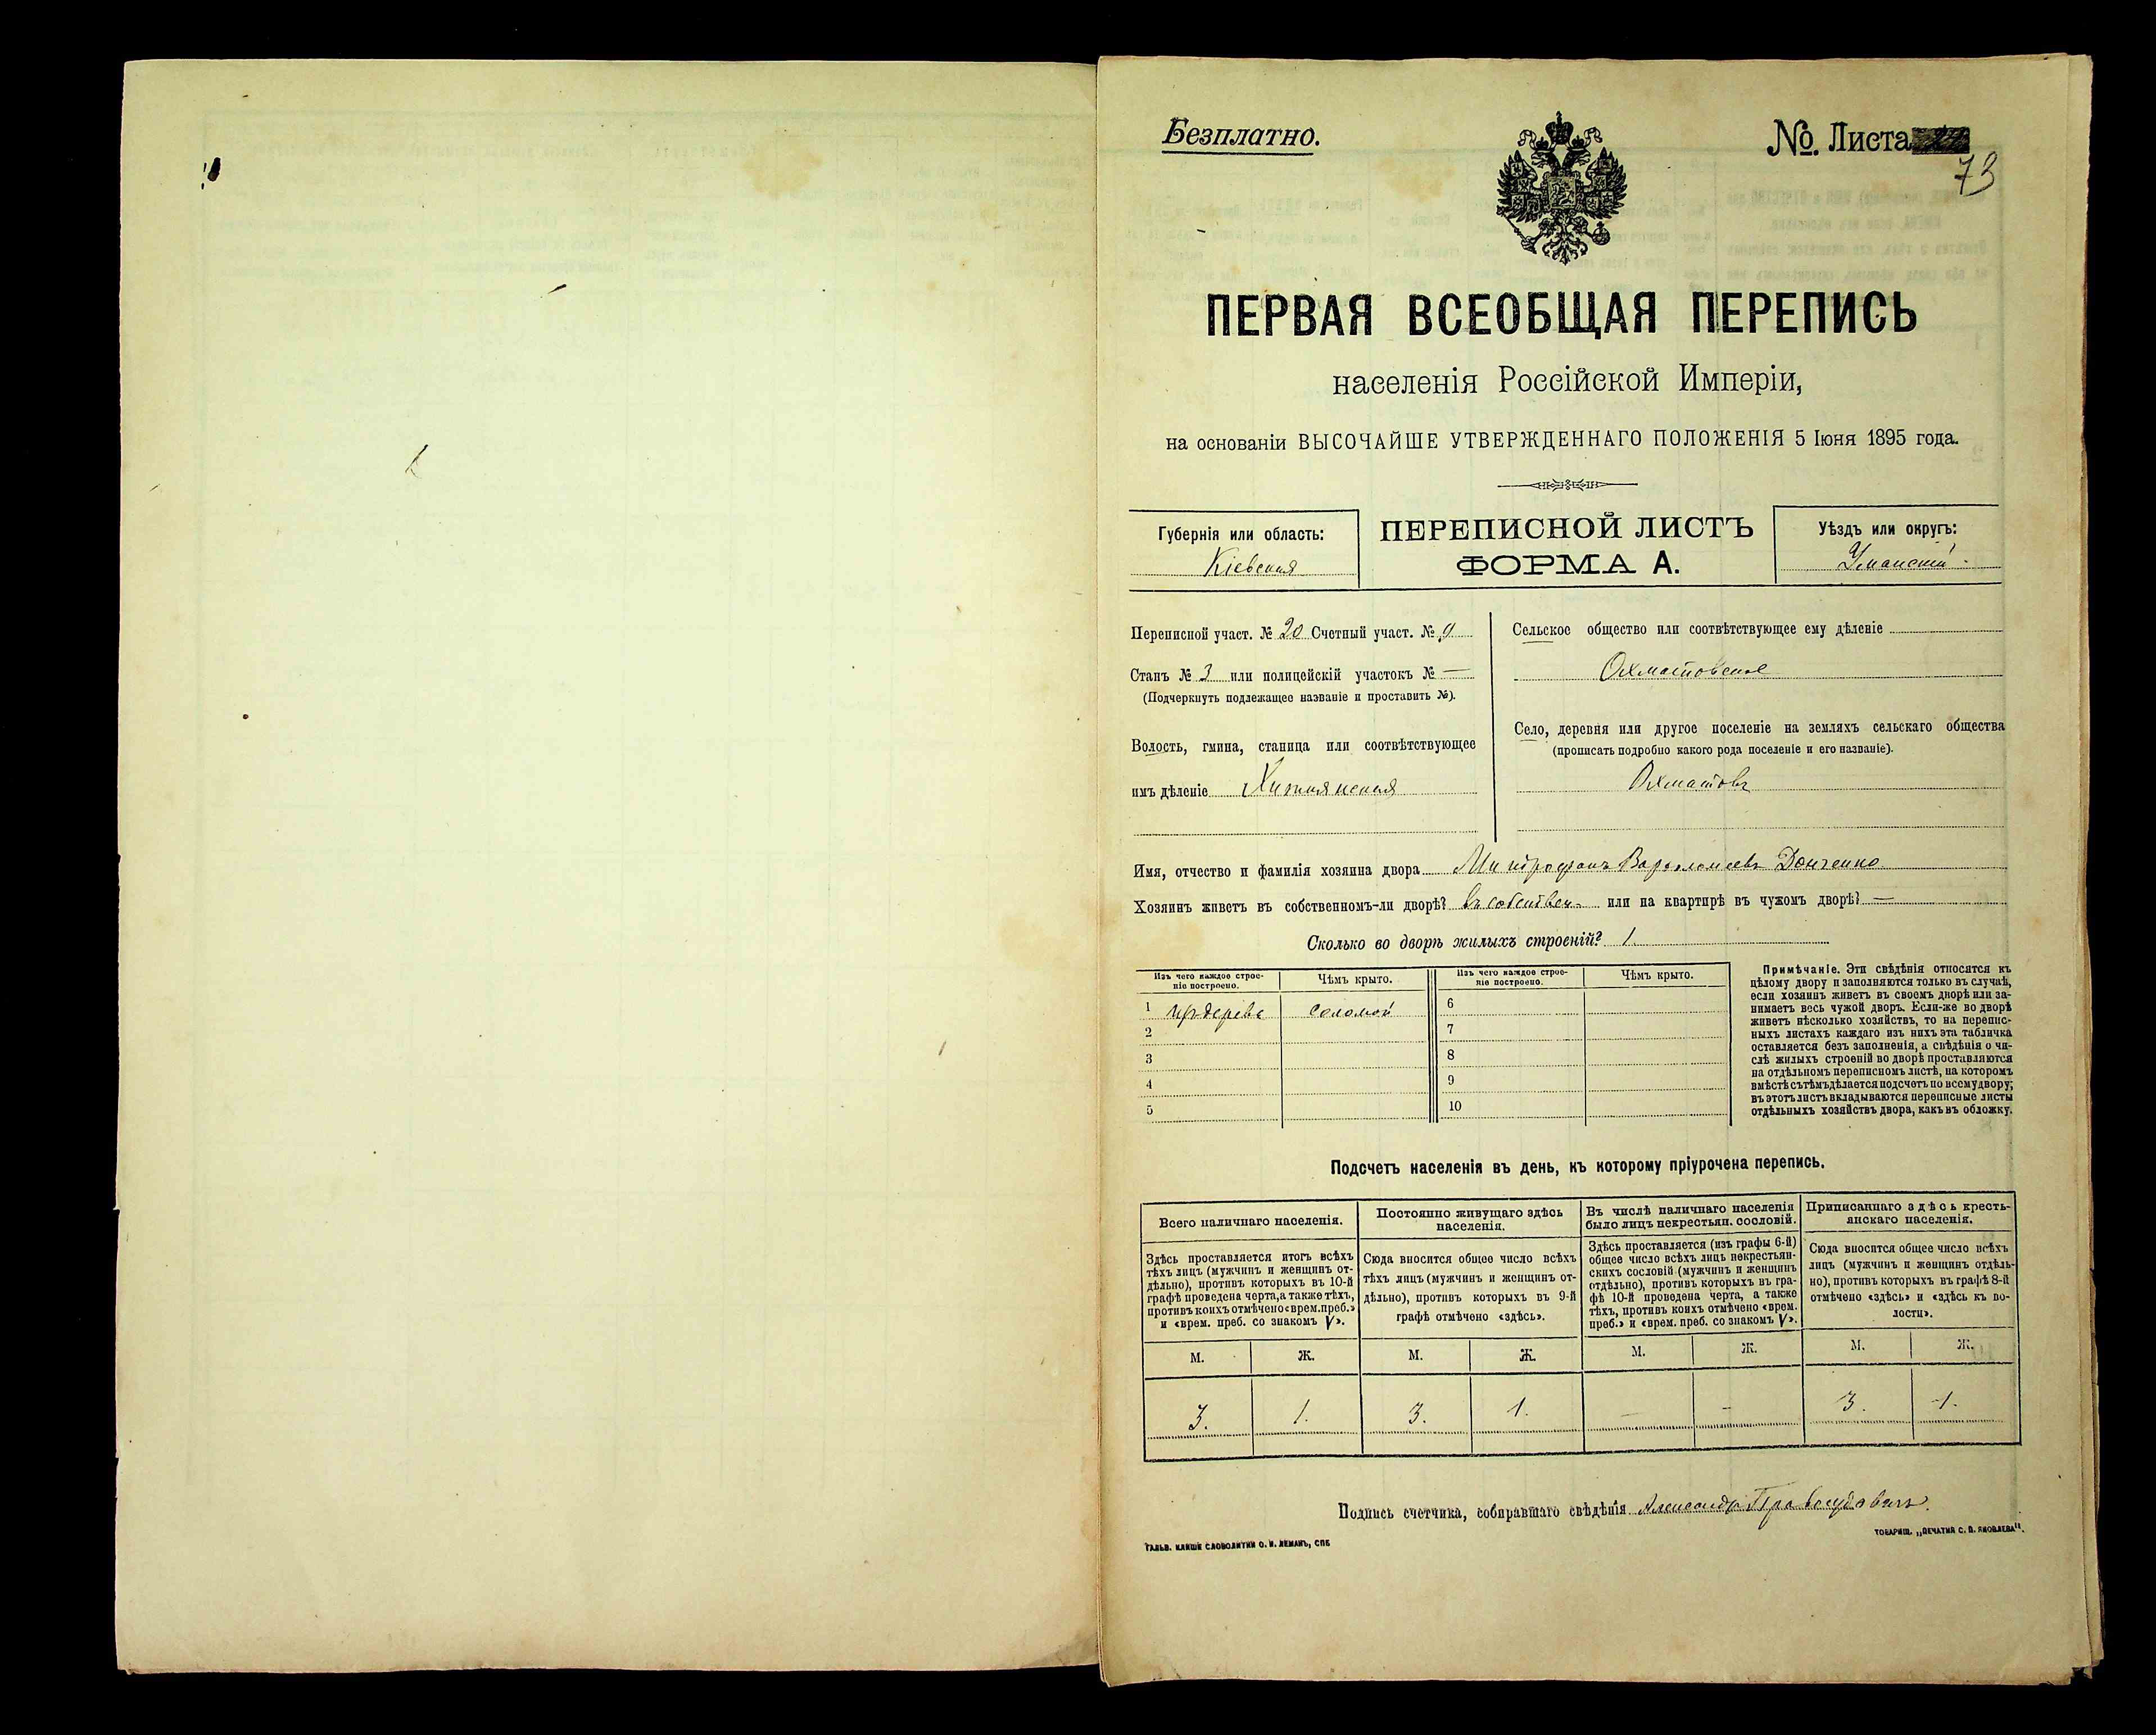 Безплатно.
№. Листа
73
ПЕРВАЯ ВСЕОБЩАЯ ПЕРЕПИСЬ
населенія Россійской Имперіи,
на основаніи ВЫСОЧАЙШЕ УТВЕРЖДЕННАГО ПОЛОЖЕНІЯ 5 Іюня 1895 года.
Губернія или область:
Кіевская
ПЕРЕПИСНОЙ ЛИСТЪ
ФОРМА А.
Уѣздъ или округъ:
Уманскій.
Переписной участ. № 20 Счетный участ. № 9
Станъ № 3 или полицейскій участокъ № —
(Подчеркнуть подлежащее названіе и проставить №).
Волость, гмина, станица или соотвѣтствующее
имъ дѣленіе
Сельское общество или соотвѣтствующее ему дѣленіе
Охматовское
Село, деревня или другое поселеніе на земляхъ сельскаго общества
(прописать подробно какого рода поселеніе и его названіе).
Охматовъ
Имя, отчество и фамилія хозяина двора Митрофанъ Варфоломеевъ Донченко
Хозяинъ живетъ въ собственномъ-ли дворѣ? въ собствен. или на квартирѣ въ чужомъ дворѣ? —
Сколько во дворѣ жилыхъ строеній? 1.
Изъ чего каждое строе-
ніе построено.
Чѣмъ крыто.
Изъ чего каждое строе-
ніе построено.
Чѣмъ крыто.
1 изъ дерева соломой
2
3
4
5
6
7
8
9
10
Примѣчаніе. Эти свѣдѣнія относятся къ
цѣлому двору и заполняются только въ случаѣ,
если хозяинъ живетъ въ своемъ дворѣ или за-
нимаетъ весь чужой дворъ. Если-же во дворѣ
живетъ нѣсколько хозяйствъ, то на перепис-
ныхъ листахъ каждаго изъ нихъ эта табличка
оставляется безъ заполненія, а свѣдѣнія о чи-
слѣ жилыхъ строеній во дворѣ проставляются
на отдѣльномъ переписномъ листѣ, на которомъ
вмѣстѣ съ тѣмъ дѣлается подсчетъ по всему двору;
въ этотъ листъ вкладываются переписные листы
отдѣльныхъ хозяйствъ двора, какъ въ обложку.
Подсчетъ населенія въ день, къ которому пріурочена перепись.
Всего наличнаго населенія.
Постоянно живущаго здѣсь
населенія.
Въ числѣ наличнаго населенія
было лицъ некрестьян. сословій.
Приписаннаго здѣсь кресть-
янскаго населенія.
Здѣсь проставляется итогъ всѣхъ
тѣхъ лицъ (мужчинъ и женщинъ от-
дѣльно), противъ которыхъ въ 10-й
графѣ проведена черта, а также тѣхъ,
противъ коихъ отмѣчено «врем. преб.»
и «врем. преб. со знакомъ V».
Сюда вносится общее число всѣхъ
тѣхъ лицъ (мужчинъ и женщинъ от-
дѣльно), противъ которыхъ въ 9-й
графѣ отмѣчено «здѣсь».
Здѣсь проставляется (изъ графы 6-й)
общее число всѣхъ лицъ некрестьян-
скихъ сословій (мужчинъ и женщинъ
отдѣльно), противъ которыхъ въ гра-
фѣ 10-й проведена черта, а также
тѣхъ, противъ коихъ отмѣчено «врем.
преб.» и «врем. преб. со знакомъ V».
Сюда вносится общее число всѣхъ
лицъ (мужчинъ и женщинъ отдѣль-
но), противъ которыхъ въ графѣ 8-й
отмѣчено «здѣсь» и «здѣсь къ во-
лости».
М. Ж. М. Ж. М. Ж. М. Ж.
3. 1. 3. 1. — — 3. 1.
Подпись счетчика, собиравшаго свѣдѣнія Александръ
ГАЛЬВ. КЛИШЕ СЛОВОЛИТНИ О. И. ЛЕМАНЪ, СПБ
ТОВАРИЩ. „ПЕЧАТНЯ С. П. ЯКОВЛЕВА".